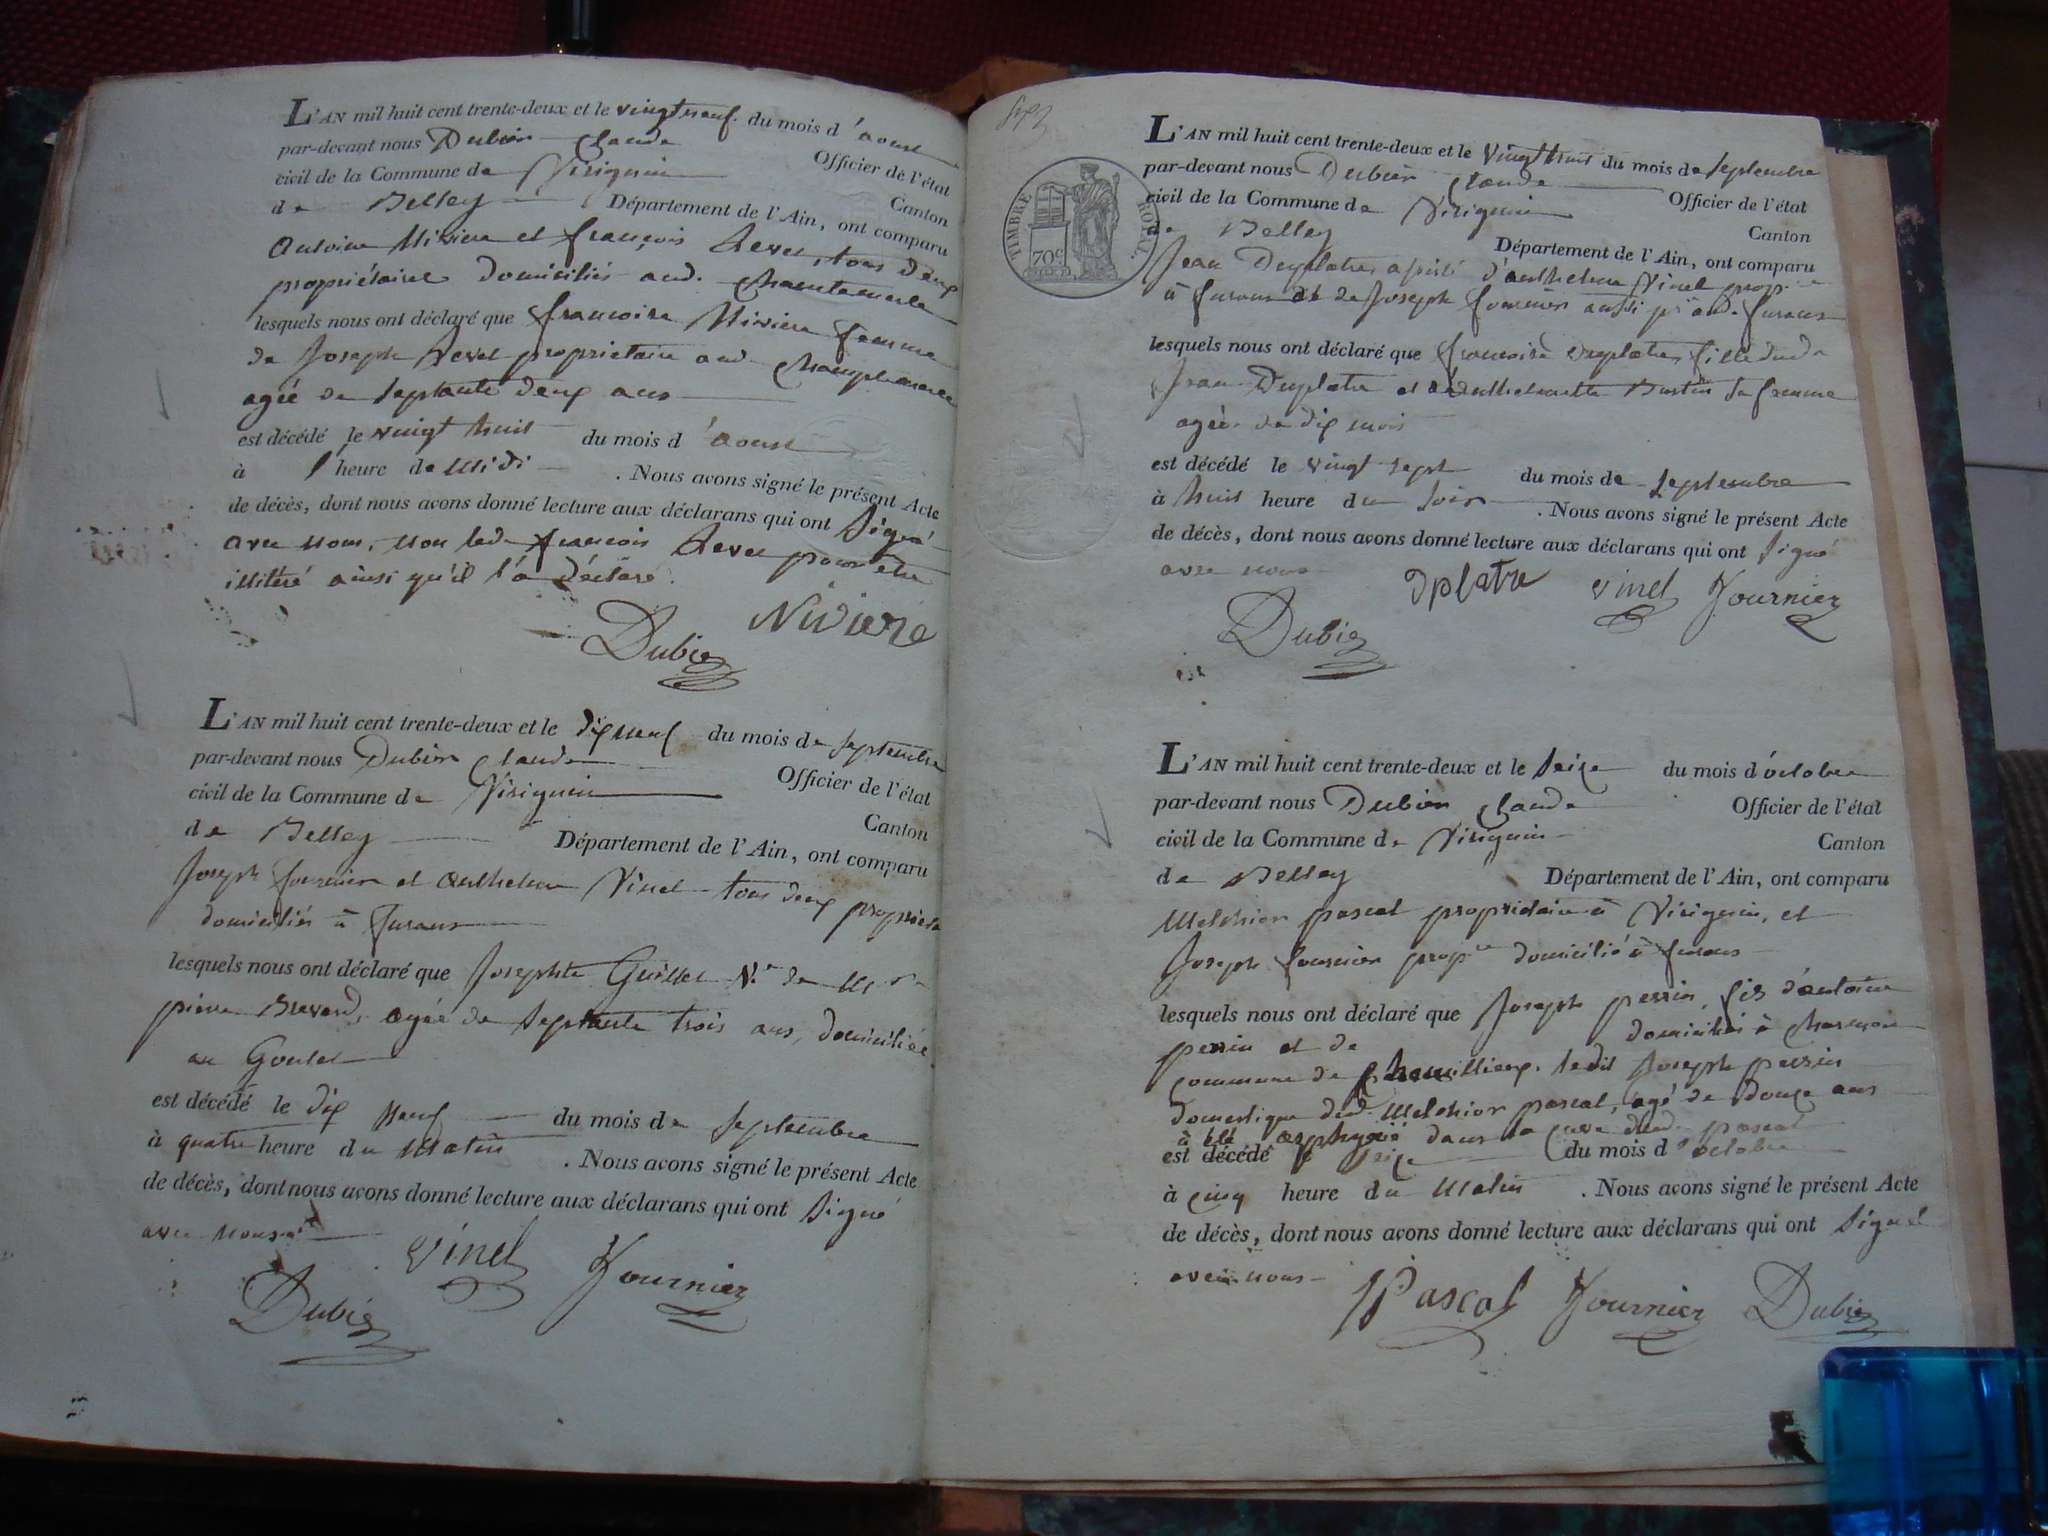 L'AN mil huit cent trente-deux et le vingt neuf du mois d'aoust
par-devant nous Dubier Claude Officier de l'état
civil de la Commune de Virignin Canton
de Belley Département de l'Ain, ont comparu
antoine Niviere et françois Revel, tous deux
propriétaires domiciliés aud.
lesquels nous ont déclaré que francoise Niviere femme
de Joseph Revel proprietaire aud
agée de septante deux ans
est décédé le vingt huit du mois d'aoust
à 1 heure de Midi . Nous avons signé le présent Acte
de décès, dont nous avons donné lecture aux déclarans qui ont Signé
avec nous, non led. françois Revel pour être
illitéré ainsi qu'il l'a déclaré.
Niviere
Dubier
L'AN mil huit cent trente-deux et le dix neuf du mois de septembre
par-devant nous Dubier Claude Officier de l'état
civil de la Commune de Virignin Canton
de Belley Département de l'Ain, ont comparu
Joseph fournier et anthelme Vinel tous deux
domiciliés à furans
lesquels nous ont déclaré que Josephte Guillet Ve de Mr
pierre agée de septante trois ans, domiciliée
au Goulet
est décédé le dix neuf du mois de septembre
à quatre heure du Matin . Nous avons signé le présent Acte
de décès, dont nous avons donné lecture aux déclarans qui ont signé
avec nous
Vinel Fournier
Dubier
TIMBRE ROYAL
70c
L'AN mil huit cent trente-deux et le vingt huit du mois de septembre
par-devant nous Dubier Claude Officier de l'état
civil de la Commune de Virignin Canton
de Belley Département de l'Ain, ont comparu
Jean Duplatre, assisté d'anthelme Vinel prop
à furans et de Joseph fournier aussi pre aud. furans
lesquels nous ont déclaré que francoise Duplatre, fille dud
Jean Duplatre et d'anthelmette sa femme
agée de dix mois
est décédé le vingt sept du mois de septembre
à huit heure du soir . Nous avons signé le présent Acte
de décès, dont nous avons donné lecture aux déclarans qui ont signé
avec nous
Dplatre Vinel Fournier
Dubier
L'AN mil huit cent trente-deux et le seize du mois d'octobre
par-devant nous Dubier Claude Officier de l'état
civil de la Commune de Virignin Canton
de Belley Département de l'Ain, ont comparu
Melchior pascal propriétaire à Virignin, et
Joseph fournier propre domicilié à furans
lesquels nous ont déclaré que Joseph perrin, fils d'antoine
perrin et de domiciliés à
commune de ledit Joseph perrin
domestique dud. Melchior pascal, agé de douze ans
a été asphyxié dans la cuve dud. pascal
est décédé le seize du mois d'octobre
à cinq heure du Matin . Nous avons signé le présent Acte
de décès, dont nous avons donné lecture aux déclarans qui ont signé
avec nous
Pascal Fournier Dubier